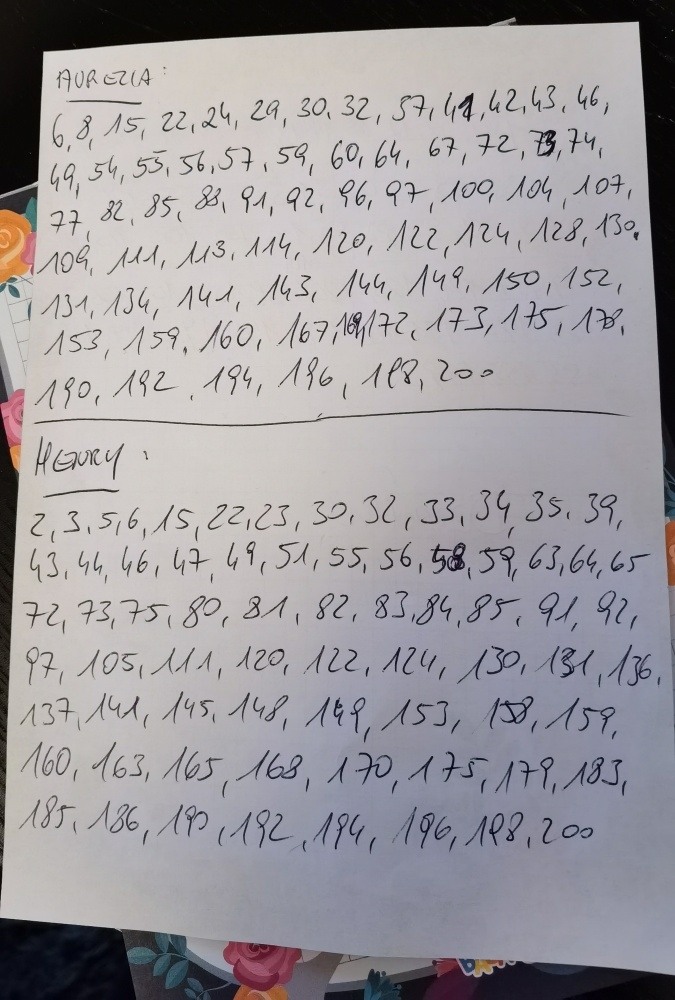 AURELIA:
6, 8, 15, 22, 24, 29, 30, 32, 37, 41, 42, 43, 46,
49, 54, 55, 56, 57, 59, 60, 64, 67, 72, 73, 74,
77, 82, 85, 88, 91, 92, 96, 97, 100, 104, 107,
109, 111, 113, 114, 120, 122, 124, 128, 130,
131, 134, 141, 143, 144, 149, 150, 152,
153, 159, 160, 167, 169, 172, 173, 175, 178,
190, 192, 194, 196, 198, 200
HENRY:
2, 3, 5, 6, 15, 22, 23, 30, 32, 33, 34, 35, 39,
43, 44, 46, 47, 49, 51, 55, 56, 58, 59, 63, 64, 65
72, 73, 75, 80, 81, 82, 83, 84, 85, 91, 92,
97, 105, 111, 120, 122, 124, 130, 131, 136,
137, 141, 145, 148, 149, 153, 158, 159,
160, 163, 165, 168, 170, 175, 179, 183,
185, 186, 190, 192, 194, 196, 198, 200